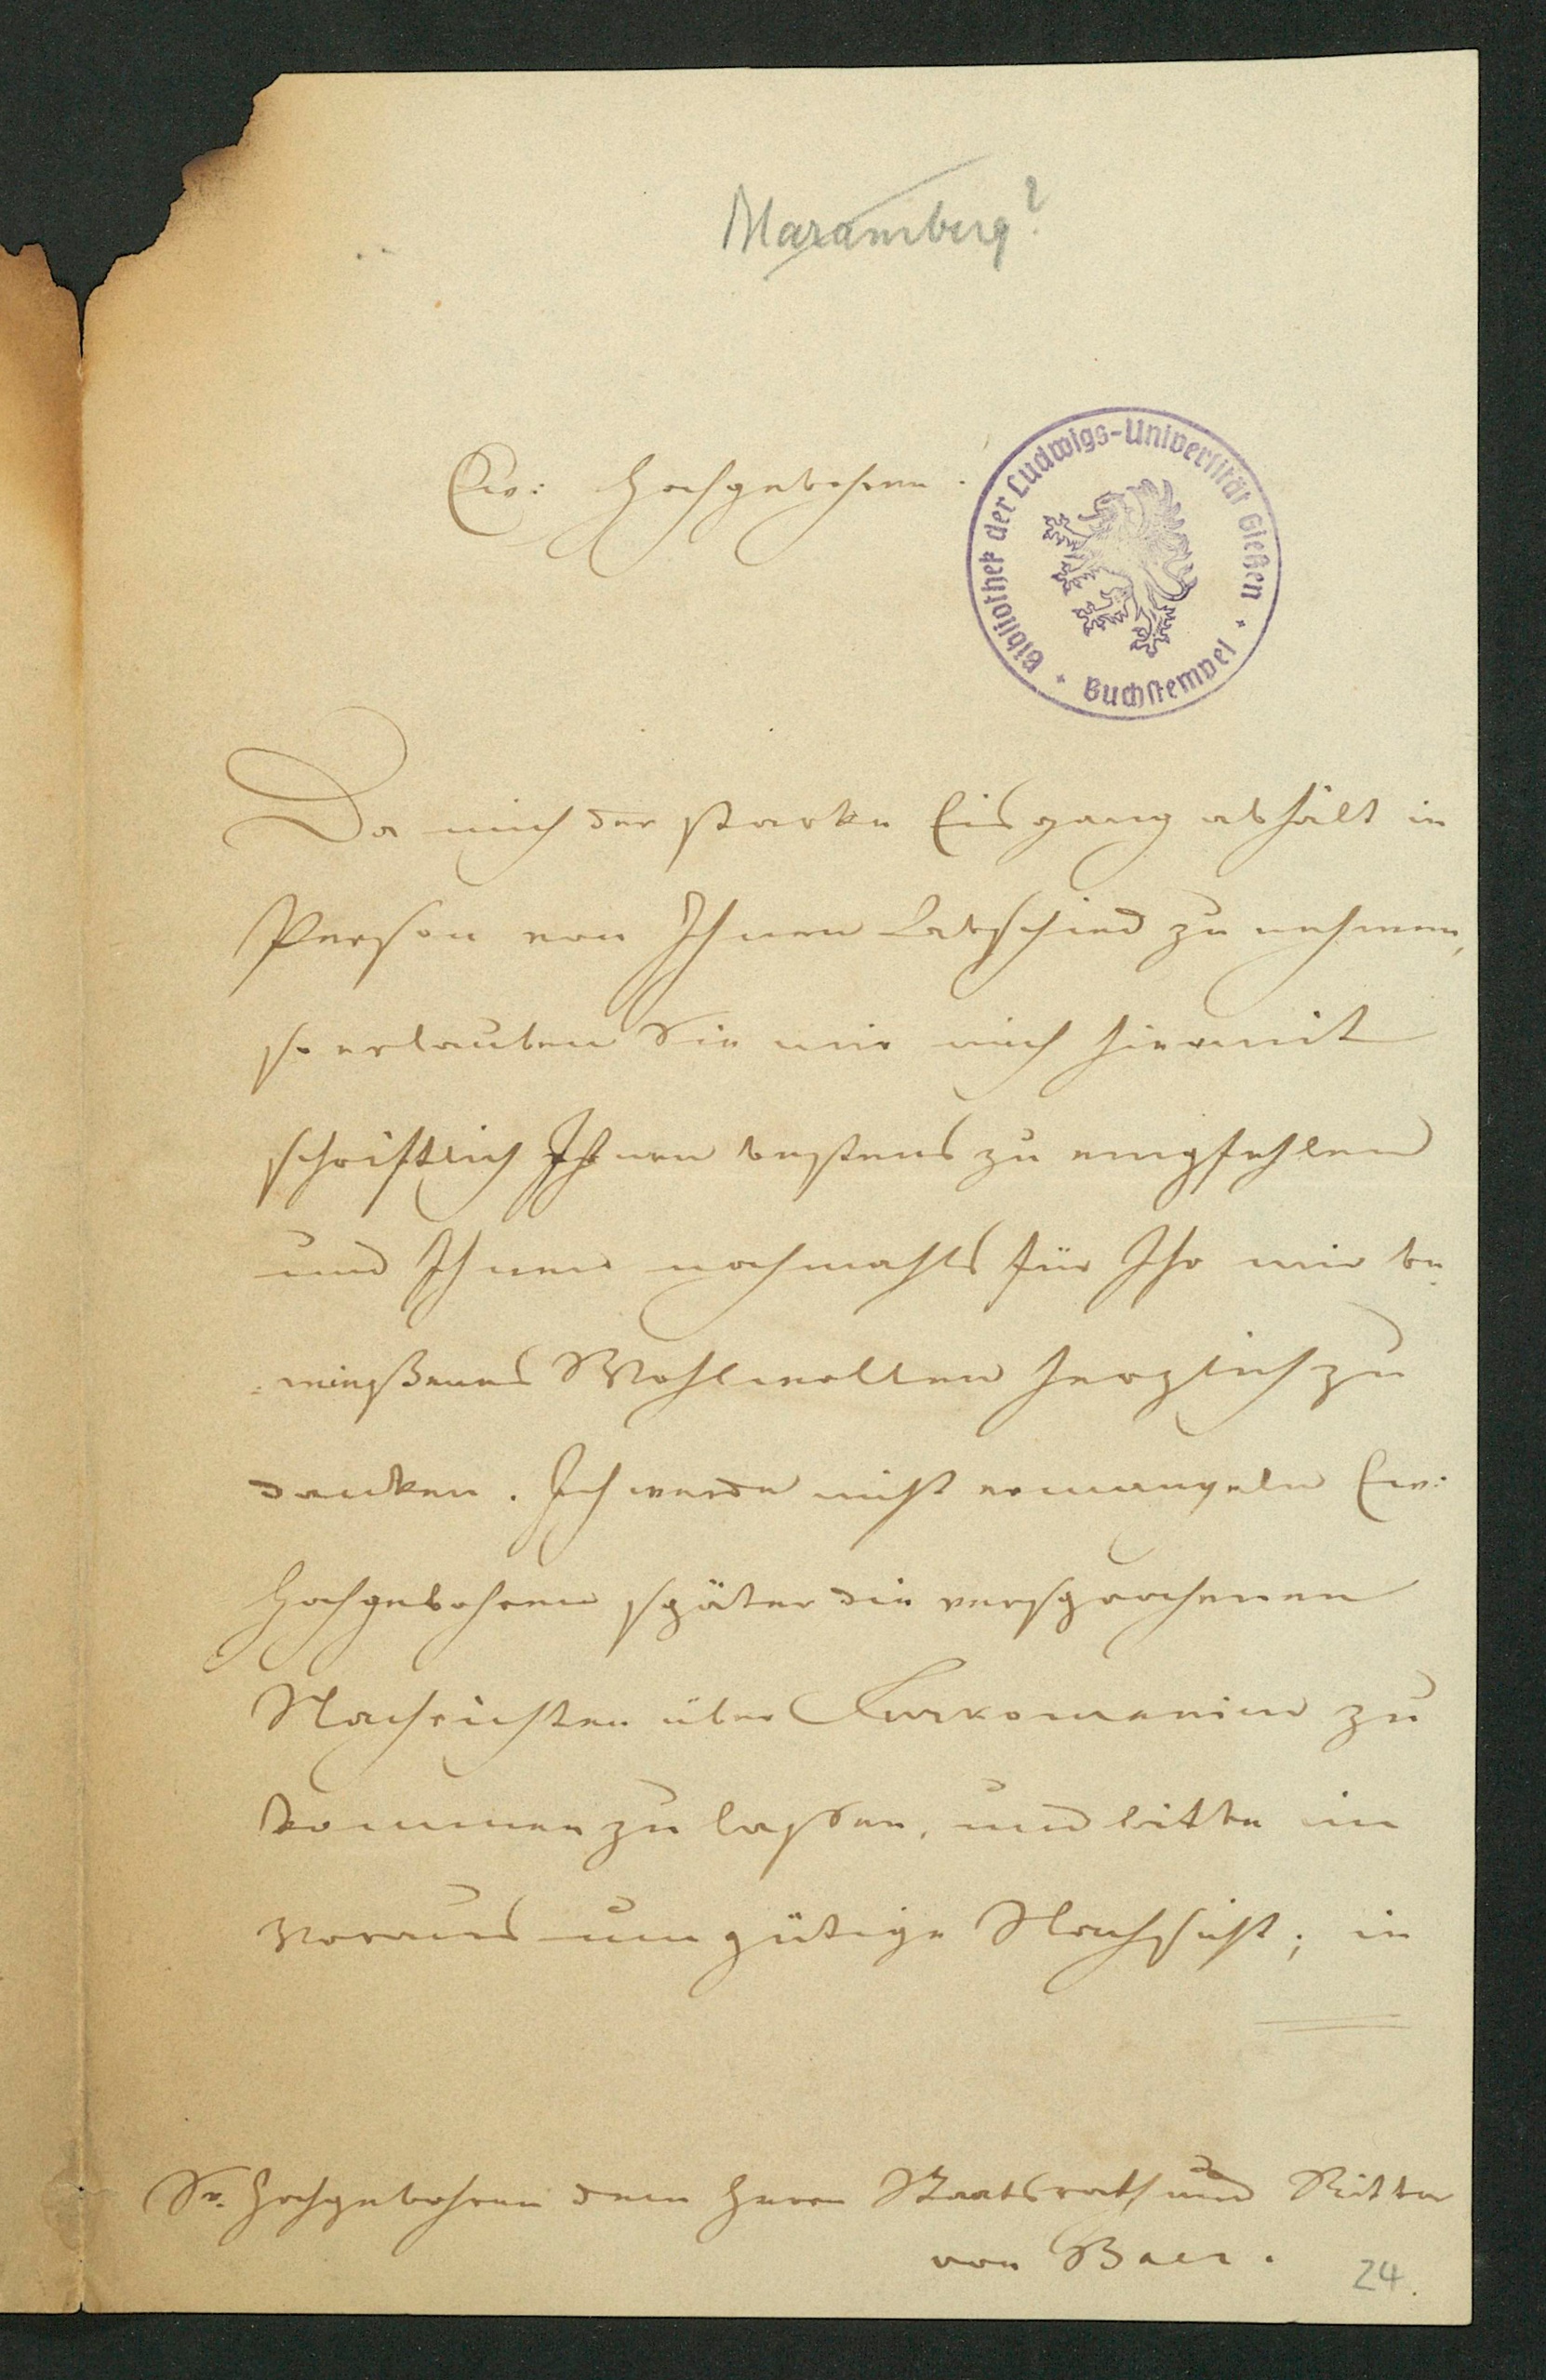 Maramberg?
Ew: Hochgebohren.
Bibliothek der Ludwigs-Universität Gießen
Buchstempel
Da mich der starke Eisgang abhält in
Person von Ihnen Abschied zu nehmen,
so erlauben Sie mir mich hiermit
schriftlich Ihnen bestens zu empfehlen
und Ihnen nochmahls für Ihr mir be
wießenes Wohlwollen herzlich zu
danken. Ich werde nicht ermangeln Ew:
Hochgebohren später die versprochenen
Nachrichten über Turkomanien zu
kommen zu laßen, und bitte im
Voraus um gütige Nachsicht; in
Sr. Hochgebohren dem Herrn Staatsrath und Ritter
von Baer.
24.